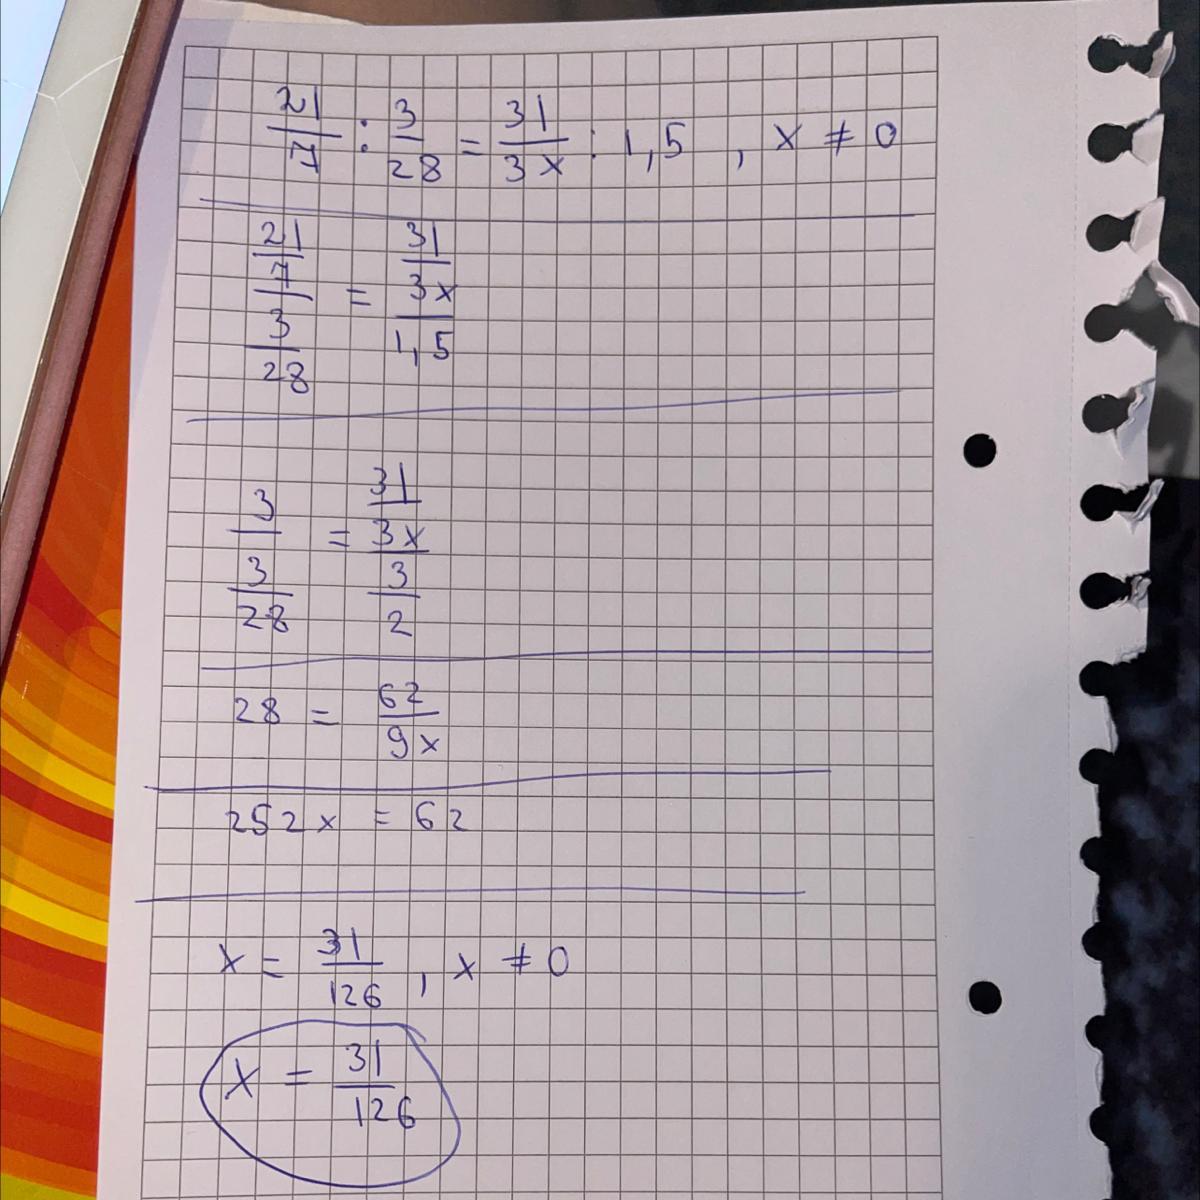 21/7 : 3/28 = 31/3x : 1,5 , x ≠ 0
21/7/3/28 = 31/3x/1,5
3/3/28 = 31/3x/3/2
28 = 62/9x
252x = 62
x = 31/126 , x ≠ 0
x = 31/126